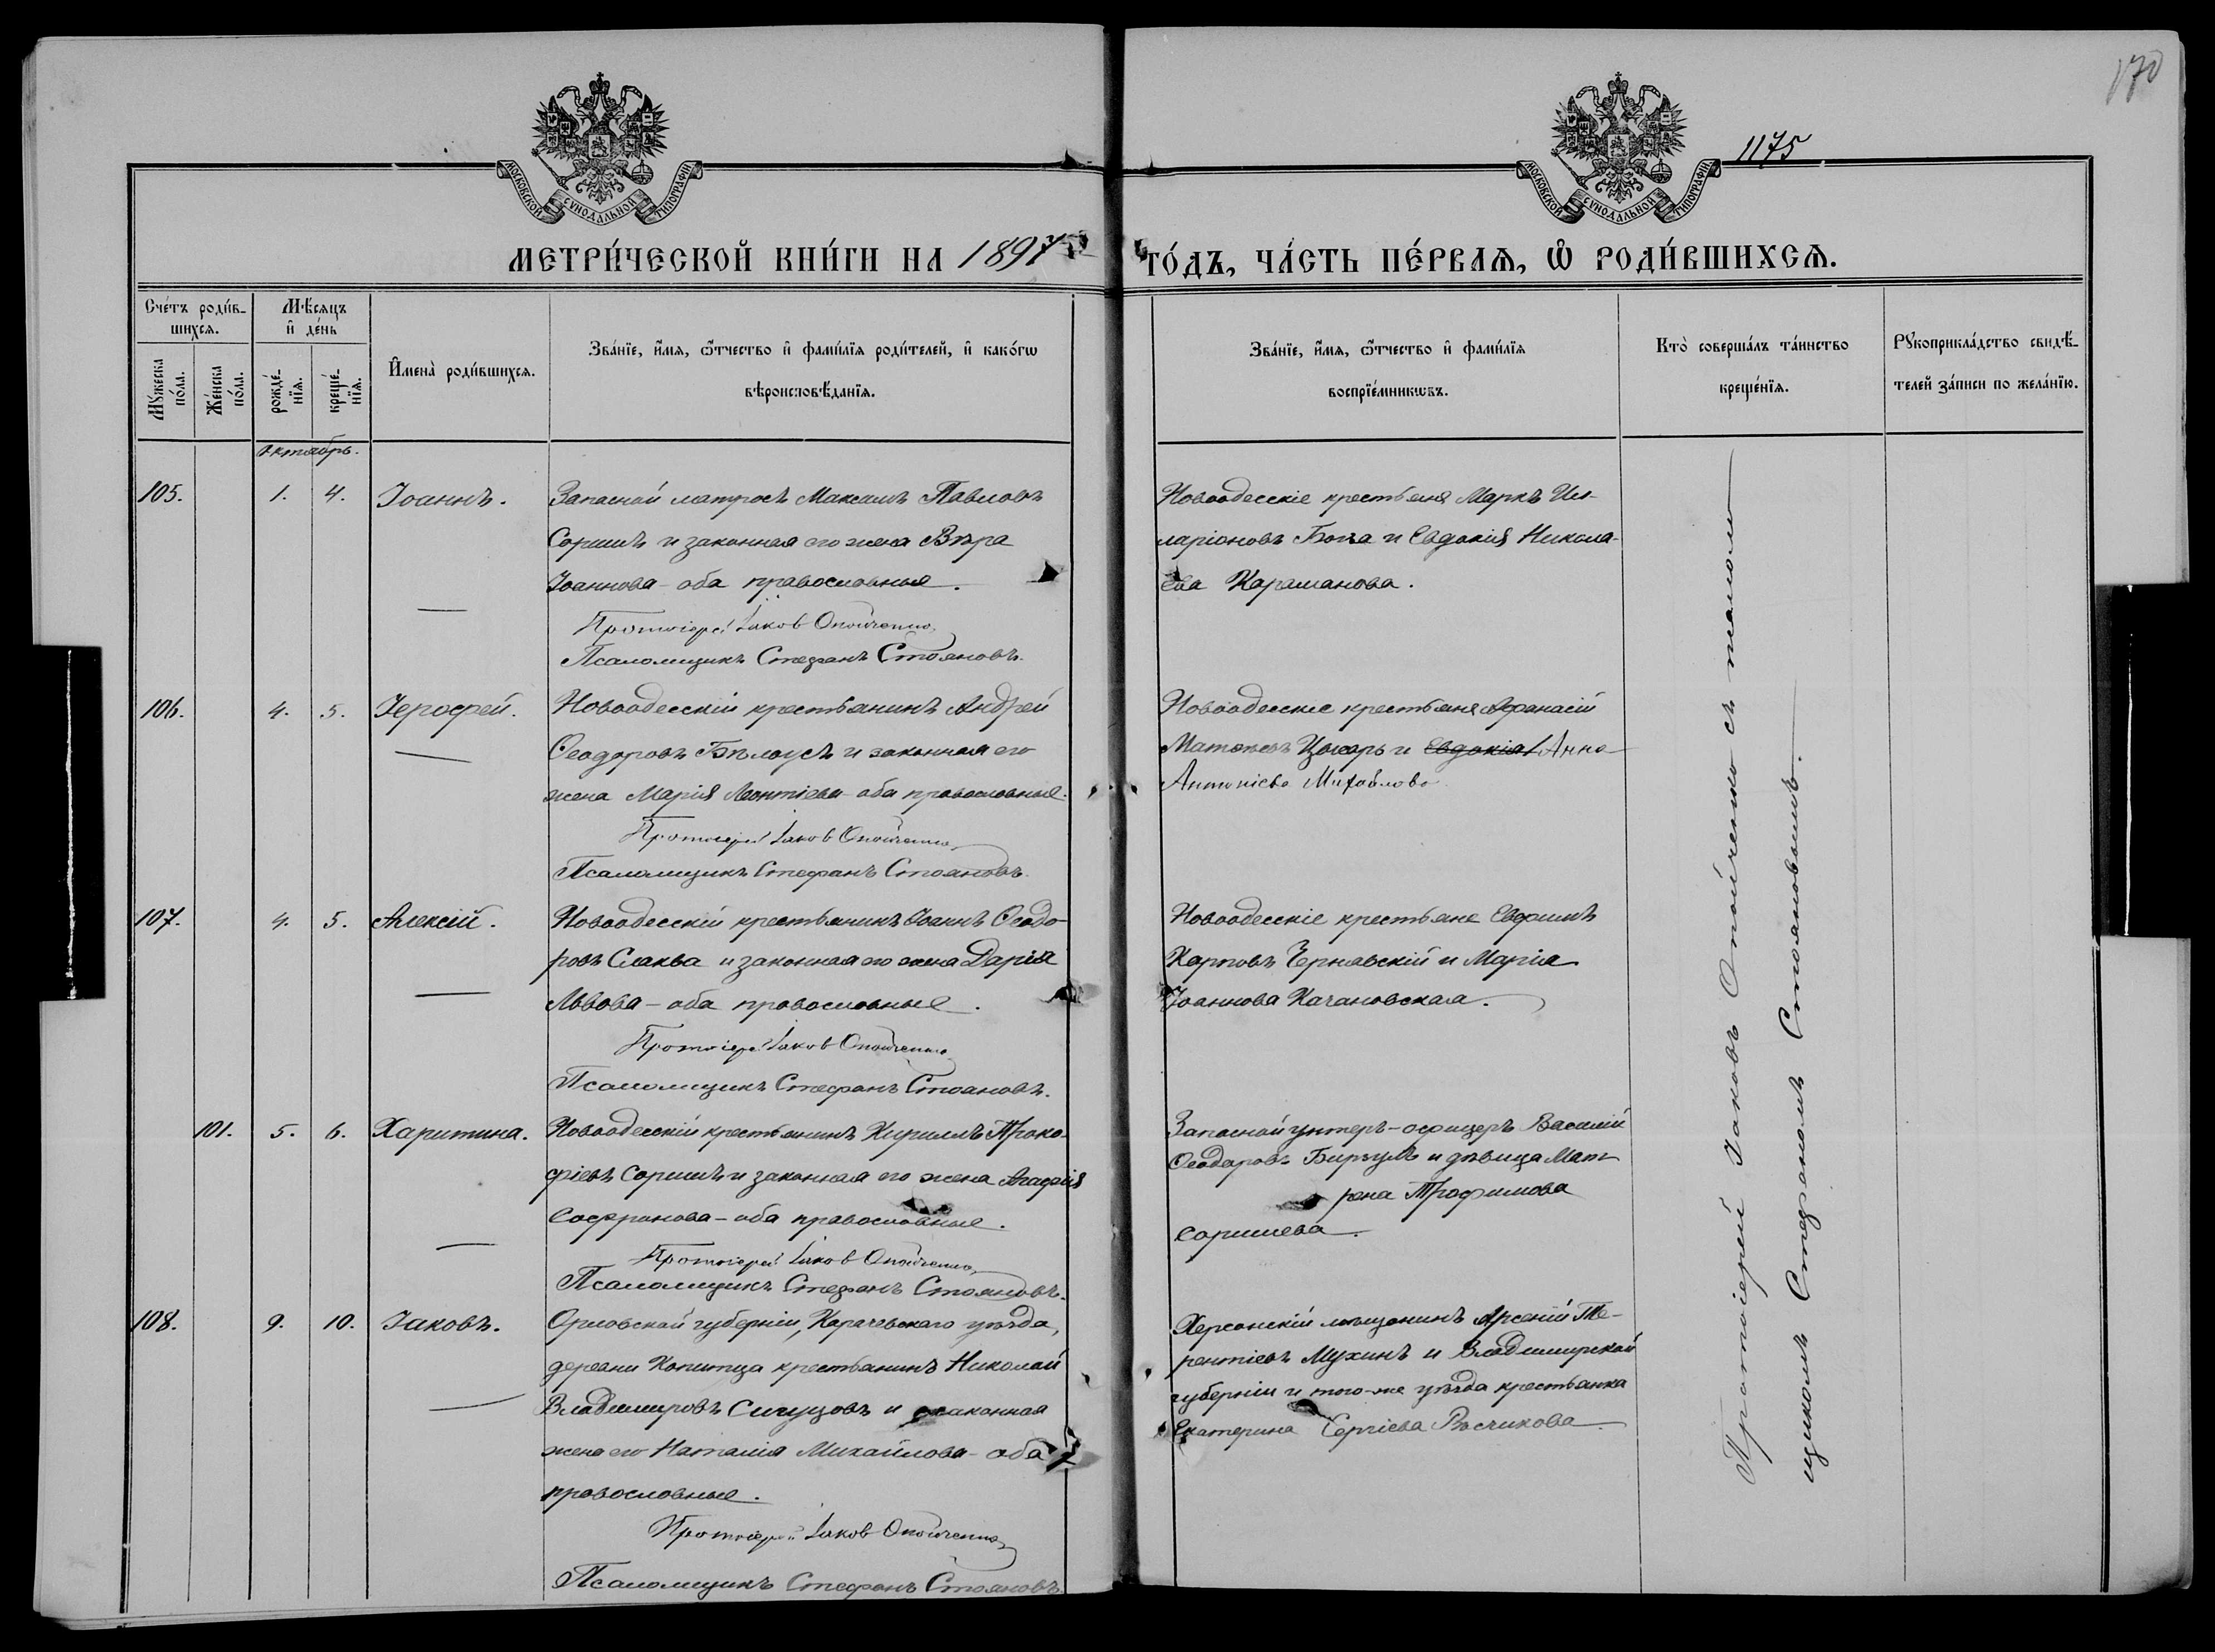 170
1175
МОСКОВСКОЙ СѴНОДАЛЬНОЙ ТИПОГРАФІИ
МОСКОВСКОЙ СѴНОДАЛЬНОЙ ТИПОГРАФІИ
МЕТРИ́ЧЕСКОЙ КНИ́ГИ НА 1897 ГО́ДЪ, ЧА́СТЬ ПЕ́РВАѦ, Ѽ РОДИ́ВШИХСѦ.
Сче́тъ роди́в-
шихсѧ.
Мꙋ́жеска
по́ла.
Же́нска
по́ла.
Мѣ́сяцъ
и҆ де́нь
рожде́-
нїѧ.
креще́-
нїѧ.
И҆мена̀ роди́вшихсѧ.
Зва́нїе, и҆́мѧ, ѻ҆́тчество и҆ фами́лїѧ роди́телей, и҆ како́гѡ
вѣроисповѣ́данїѧ.
Зва́нїе, и҆́мѧ, ѻ҆́тчество и҆ фами́лїѧ
воспрїе́мникѡвъ.
Кто̀ соверша́лъ та́инство
креще́нїѧ.
Рꙋкоприкла́дство свидѣ́-
телей за́писи по жела́нїю.
Октябрь.
105. 1. 4. Іоаннъ.
Запасной матросъ Максимъ Павловъ
Соришъ и законная его жена Вѣра
Іоаннова – оба православные.
Протоіерей Іаков Опойченко
Псаломщикъ Стефанъ Стояновъ.
Новоодесскіе крестьяня Маркъ Ил-
ларіоновъ и Евдокія Никола-
ева Карашанова.
106. 4. 5. Іерофей.
Новоодесскій крестьянинъ Андрей
Ѳеодоровъ Бѣлоусъ и законная его
жена Марія Леонтіева – оба православные.
Протоіерей Іаков Опойченко
Псаломщикъ Стефанъ Стояновъ.
Новоодесскіе крестьяня Афанасій
и Евдокія Анна
Антоніева
107. 4. 5. Алексій.
Новоодесскій крестьянинъ Іоаннъ Ѳеодо-
ровъ Слаква и законная его жена Дарія
Львова – оба православные.
Протоіерей Іаков Опойченко
Псаломщикъ Стефанъ Стояновъ.
Новоодесскіе крестьяне Евфимъ
Карповъ Чернявскій и Марія
Іоаннова Качановская.
101. 5. 6. Харитина.
Новоодесскій крестьянинъ Кириллъ Проко-
фіевъ Соришъ и законная его жена Агафія
Софронова – оба православные.
Протоіерей Іаков Опойченко
Псаломщикъ Стефанъ Стояновъ.
Запасной унтеръ-офицеръ Василій
Ѳеодоровъ и дѣвица Мат-
рона Трофимова
Соришева.
108. 9. 10. Іаковъ.
Орловской губерніи, Карачевскаго уѣзда,
деревни крестьянинъ Николай
Владимировъ и законная
жена его Наталія Михайлова – оба
православные.
Протоіерей Іаков Опойченко
Псаломщикъ Стефанъ Стояновъ.
Херсонскій мѣщанинъ Арсеній Те-
рентіевъ Мухинъ и Владимирской
губерніи и того-же уѣзда крестьянка
Екатерина Сергіева
Протоіерей Іаковъ Опойченко съ псалом-
щикомъ Стефаномъ Стояновымъ.